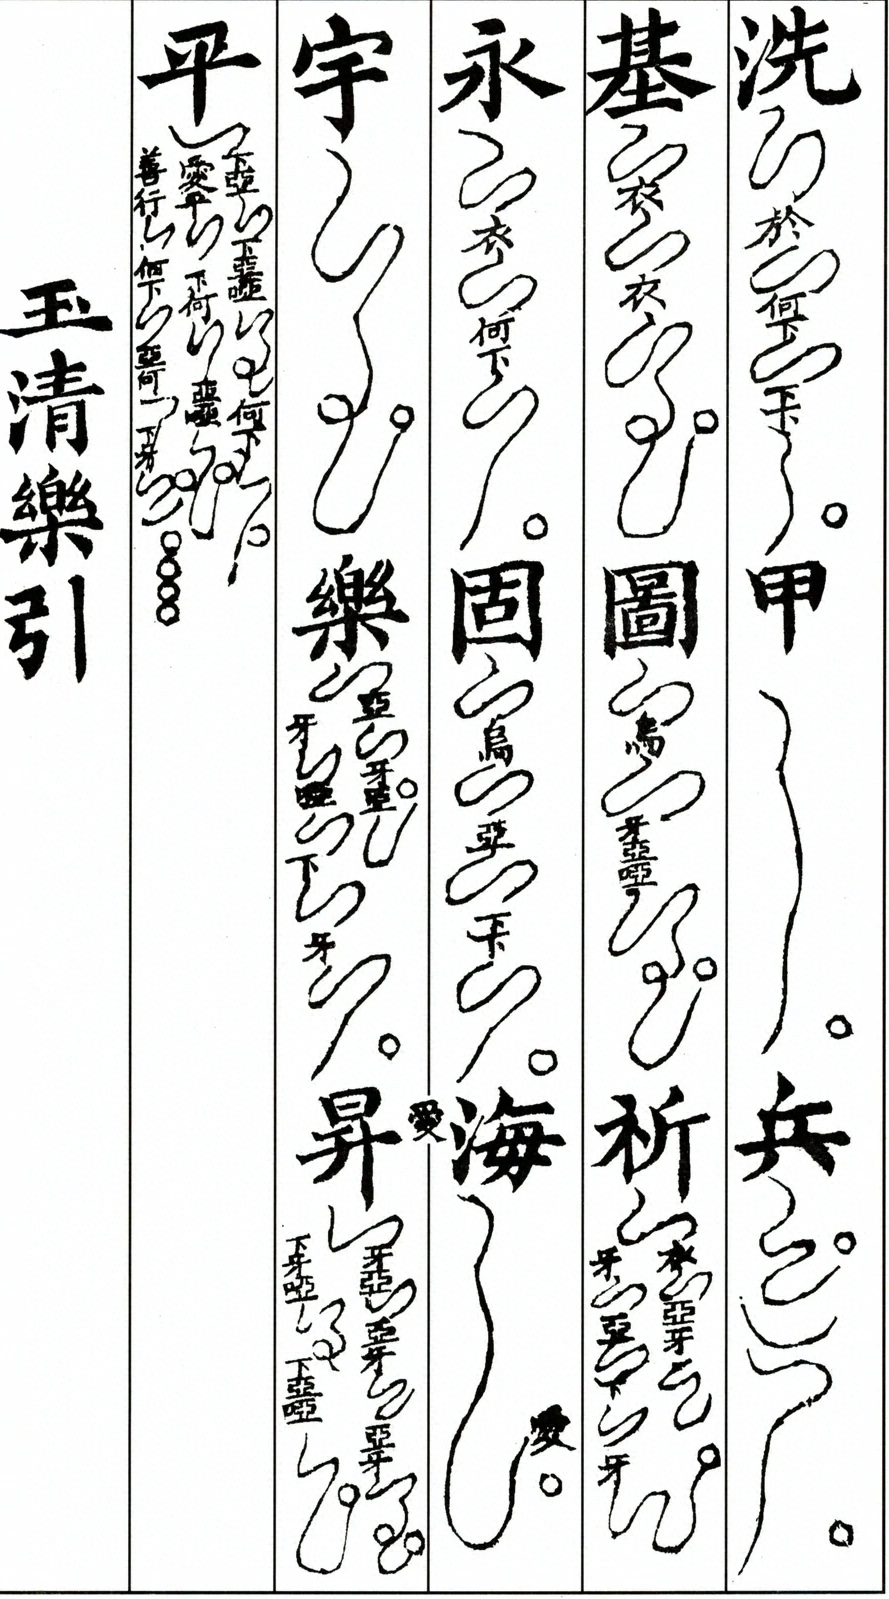 洗於何下甲兵
基衣衣圖烏牙亞啞祈衣亞牙牙亞下牙
永衣何下固烏亞海愛
宇樂亞牙亞牙啞下牙昇牙亞亞牙亞牙下牙啞下亞啞
平下亞下亞啞何下愛平下何亞啞善行何下亞何下牙
玉清樂引